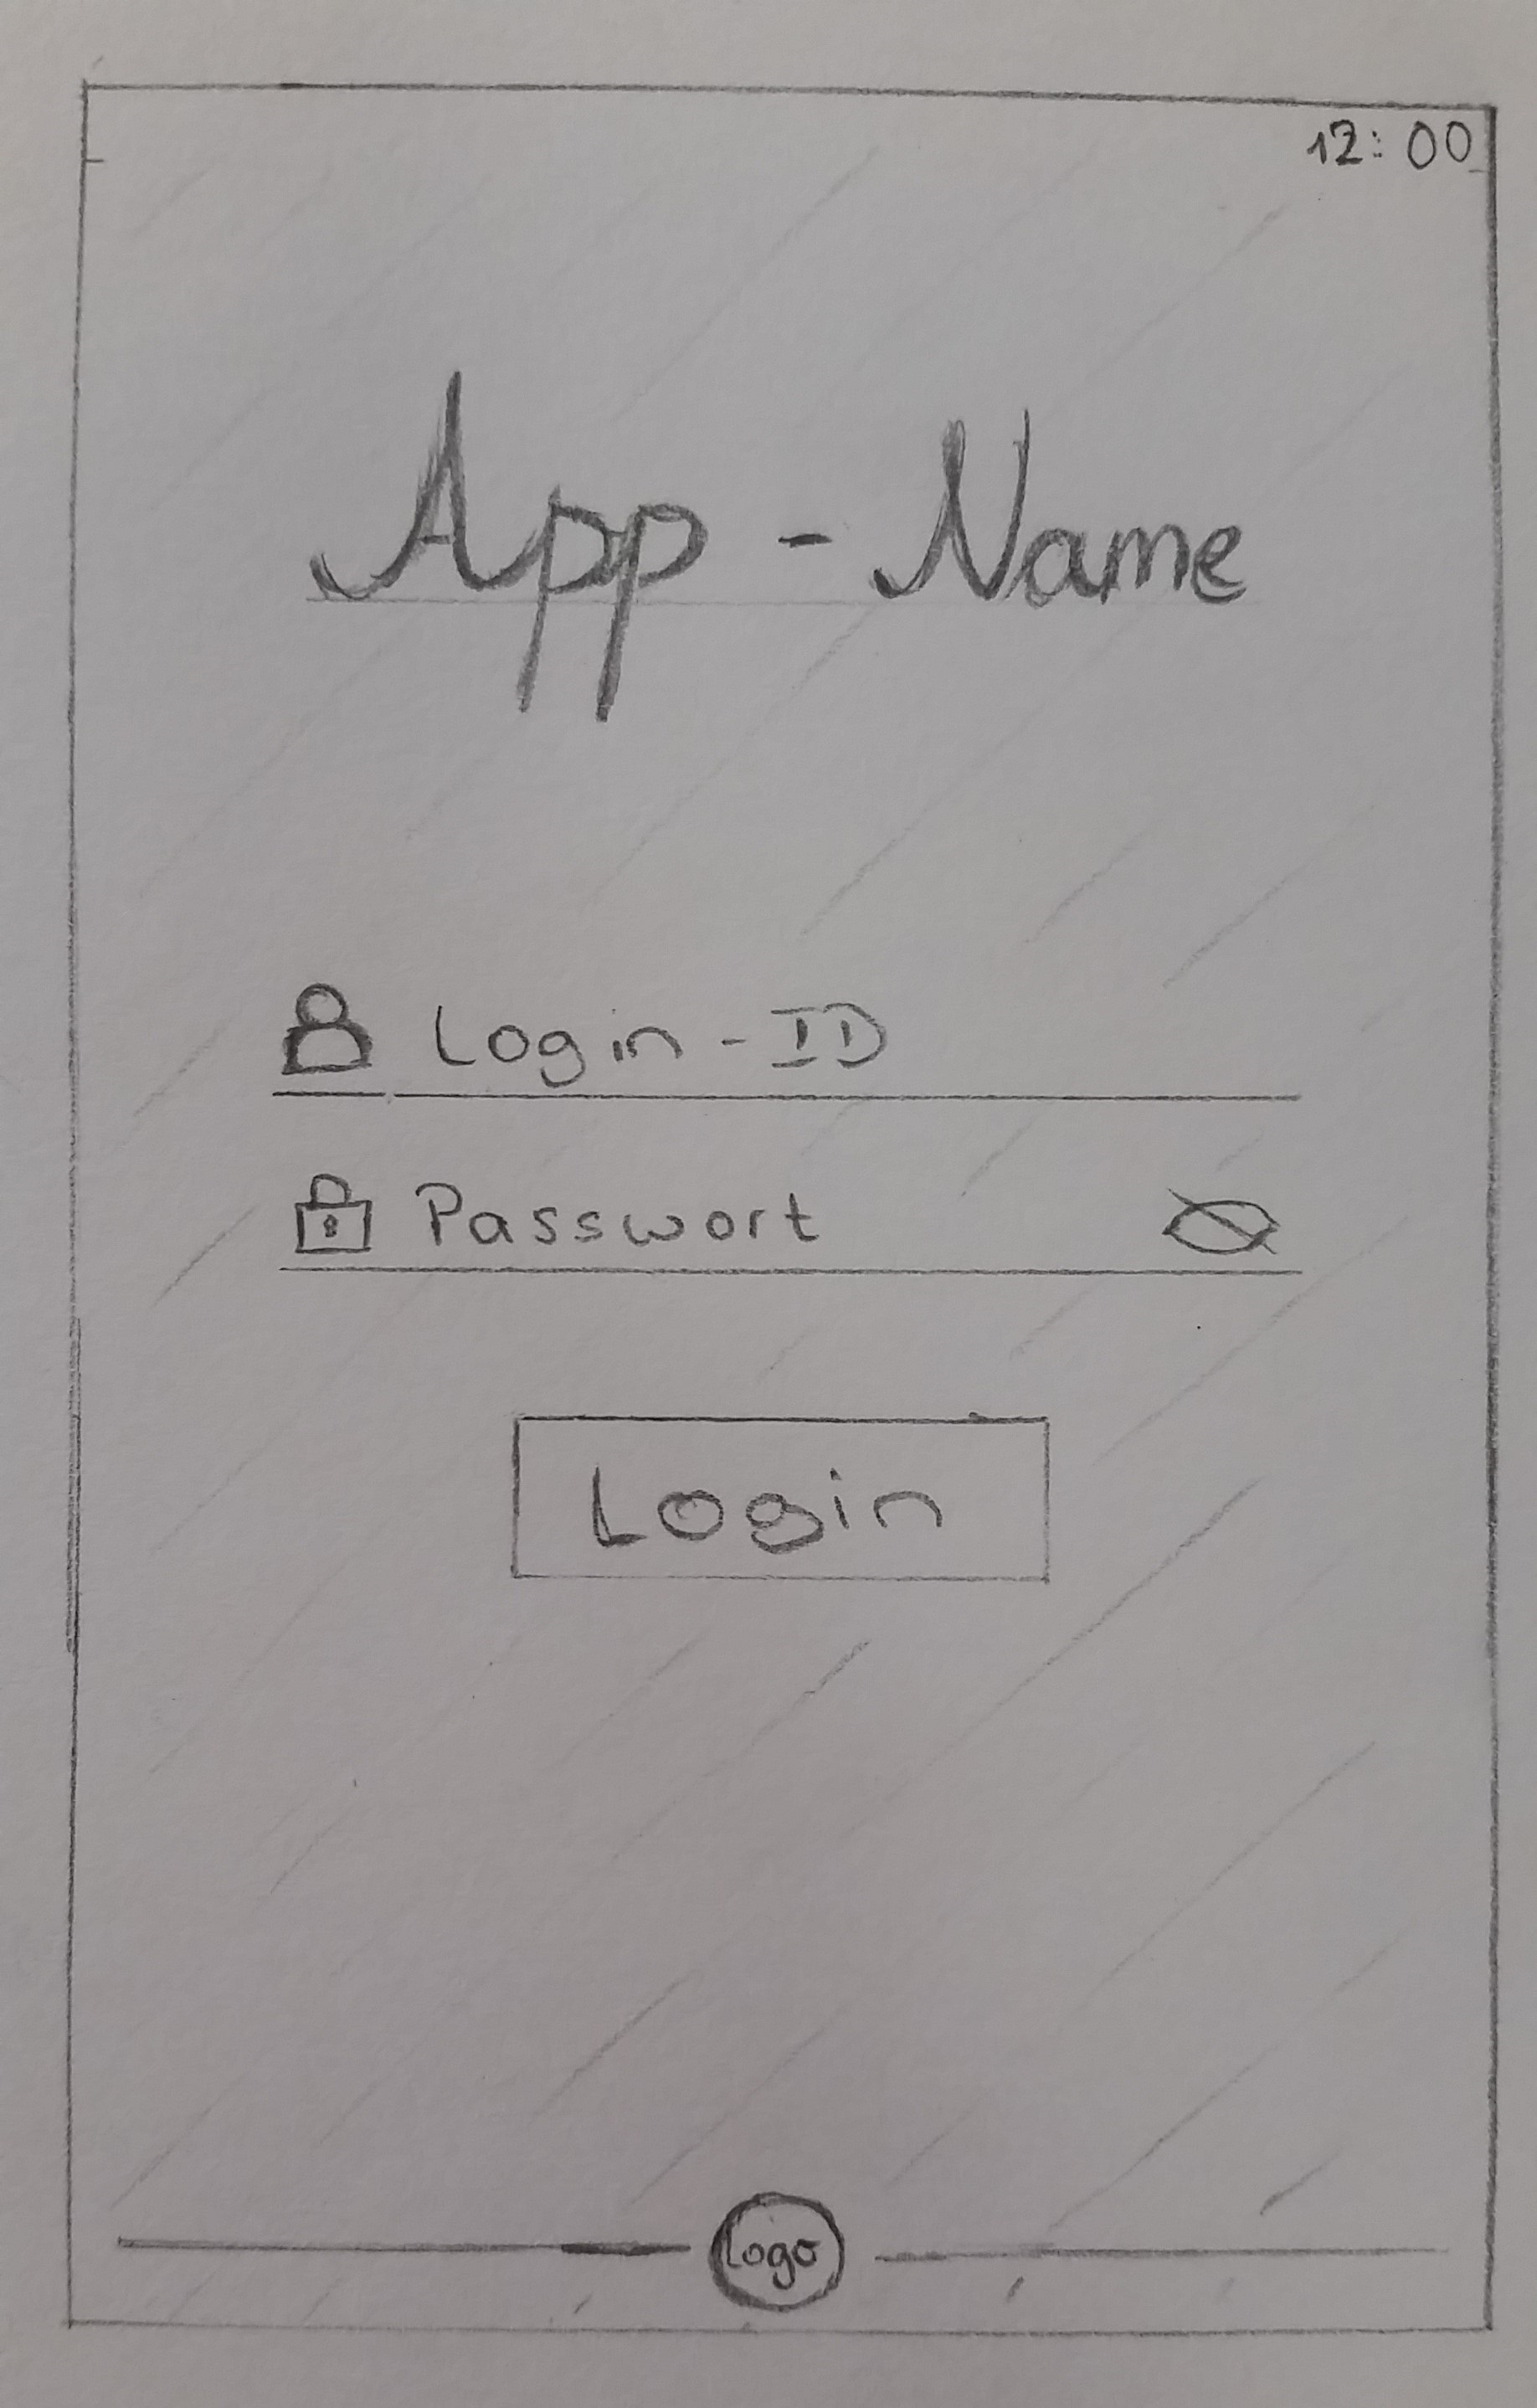 12:00
App-Name
Login-ID
Passwort
Login
Logo